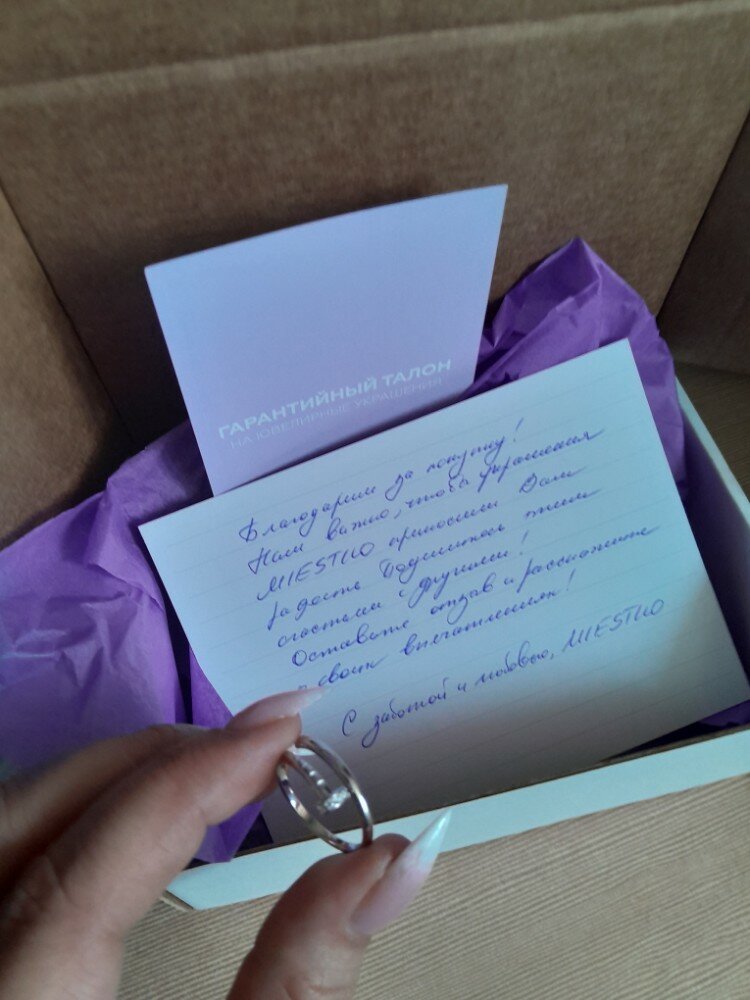 ГАРАНТИЙНЫЙ ТАЛОН
НА ЮВЕЛИРНЫЕ УКРАШЕНИЯ
Благодарим за покупку!
Нам важно, чтобы украшения
MIESTILO приносили Вам
радость. Поделитесь этим
счастьем с другими!
Оставьте отзыв и расскажите
о своих впечатлениях!
С заботой и любовью, MIESTILO